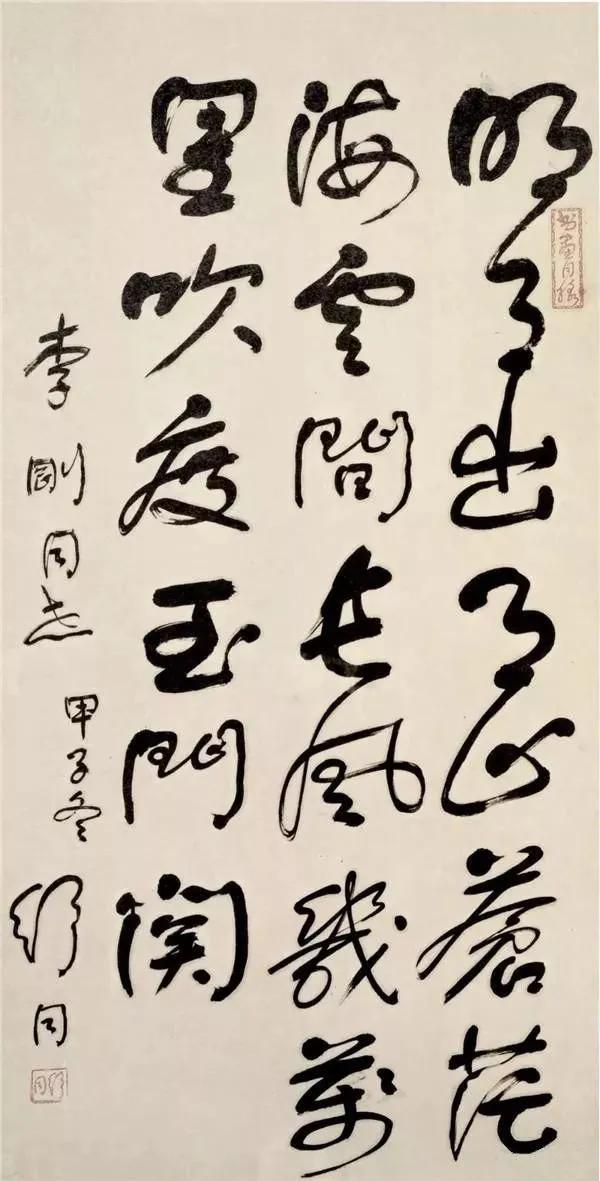 明月出天山蒼茫
海雲間長風幾萬
里吹度玉門關
李剛同志 甲子冬 舒同
舒同